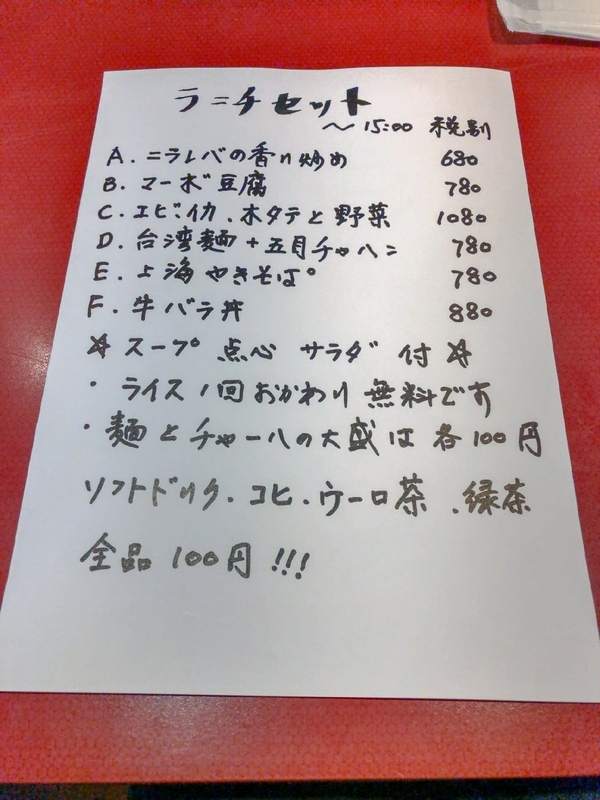 ランチセット
〜15:00 税別
A.ニラレバの香り炒め 680
B.マーボ豆腐 780
C.エビ.イカ.ホタテと野菜 1080
D.台湾麺+五目チャハン 780
E.上海やきそば 780
F.牛バラ丼 880
☆スープ 点心 サラダ 付☆
・ライス1回おかわり無料です
・麺とチャーハの大盛は各100円
ソフトドリク.コヒ.ウーロ茶.緑茶
全品100円!!!